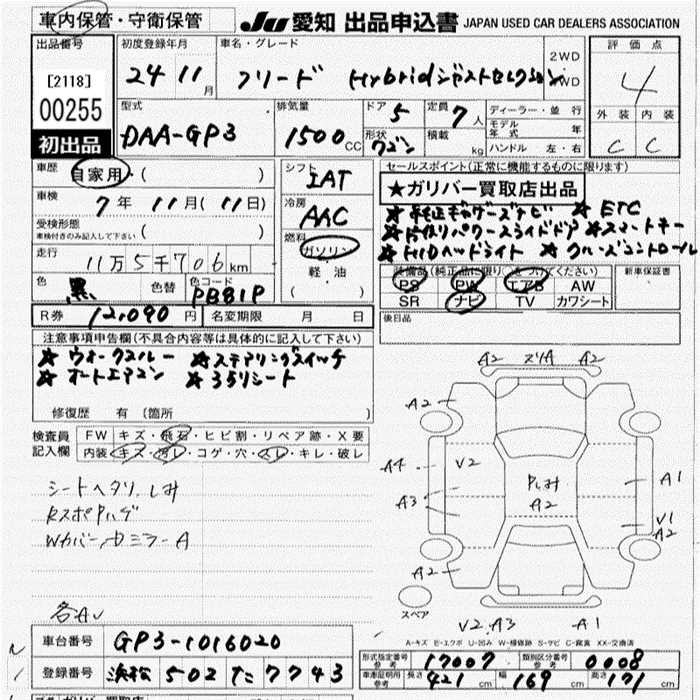 車内保管・守衛保管 Ju 愛知 出品申込書 JAPAN USED CAR DEALERS ASSOCIATION
出品番号 初度登録年月 車名・グレード 評価点
[2118] 24 11月 フリード Hybridジャストセレクション 2WD 4WD 4
00255 型式 排気量 ドア 5 定員 7人 ディーラー・並行 外装 内装
初出品 DAA-GP3 1500cc 形状 ワゴン 積載 kg モデル年式 年 ハンドル 左・右 C C
車歴 自家用・( ) シフト IAT セールスポイント(正常に機能するものに限ります)
車検 7年 11月(11日) 冷房 AAC ★ガリバー買取店出品
受検形態 車検付きのみ記入して下さい ( ) 燃料 ガソリン 軽油 ( )
★純正ギャザーズナビ ★ETC
★片側パワースライドドア ★スマートキー
★HIDヘッドライト ★クルーズコントロール
走行 11万5千706km
色 黒 色替 色コード PB81P
装備品(純正品に限り○をつけてください) 新車保証書
PS PW エアB AW
SR ナビ TV カワシート
R券 12,090円 名変期限 月 日 後日品
注意事項申告欄(不具合内容等は具体的に記入して下さい)
★ウォークスルー ★ステアリングスイッチ
★オートエアコン ★3列シート
修復歴 有(箇所 )
検査員記入欄 FW キズ・飛石・ヒビ割・リペア跡・X要
内装 キズ・汚レ・コゲ・穴・スレ・キレ・破レ
シートヘタリ、しみ
RスポPハゲ
Wカバー、カミラーA
各AU
A2 A2
A2
A4 V2 Pしみ A2 A1
A3 V1 A2
A2
スペア V2 A3 A1
A-キズ E-エクボ U-凹み W-補修跡 S-サビ C-腐食 XX-交換済
車台番号 GP3-1016020
登録番号 浜松 502 た 7743
形式指定番号 参考 17007 類別区分番号 参考 0008
車庫証明用 参考 長さ 421cm 幅 169cm 高さ 171cm